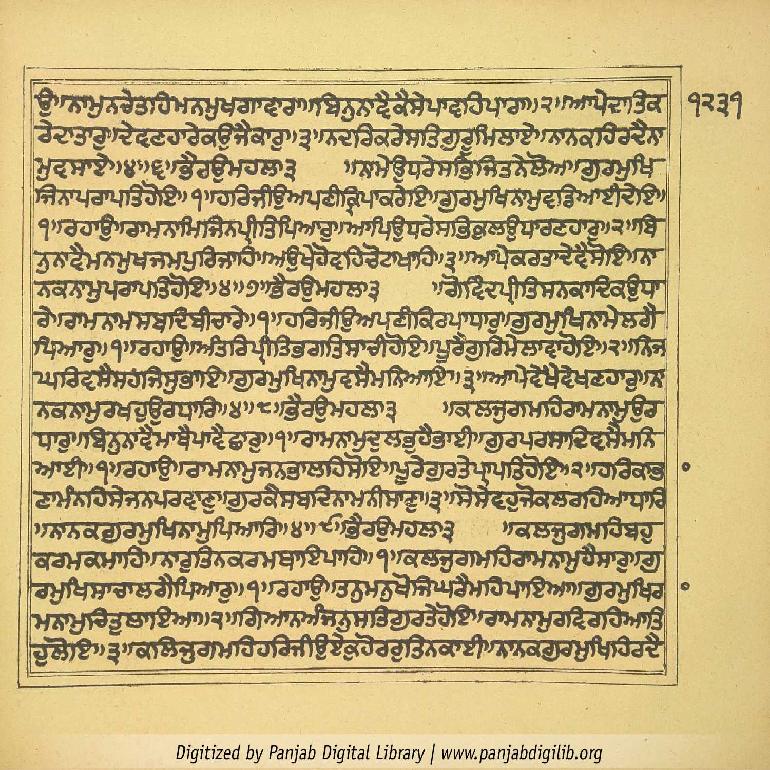 ਉ॥ਨਾਮੁਨਚੇਤਹਿਮਨਮੁਖਗਾਵਾਰਾ॥ਬਿਨੁਨਾਵੈਕੈਸੇਪਾਵਹਿਪਾਰਾ॥੨॥ਆਪੇਦਾਤਿਕ
੧੨੩੧
ਰੇਦਾਤਾਰੁ॥ਦੇਵਣਹਾਰੇਕਉਜੈਕਾਰੁ॥੩॥ਨਦਰਿਕਰੇਸਤਿਗੁਰੂਮਿਲਾਏ॥ਨਾਨਕਹਿਰਦੈਨਾ
ਮੁਵਸਾਏ॥੪॥੬॥ਭੈਰਉਮਹਲਾ੩ ॥ਨਾਮੇਉਧਰੇਸਭਿਜਿਤਨੇਲੋਅ॥ਗੁਰਮੁਖਿ
ਜਿਨਾਪਰਾਪਤਿਹੋਇ॥੧॥ਹਰਿਜੀਉਅਪਣੀਕ੍ਰਿਪਾਕਰੇਇ॥ਗੁਰਮੁਖਿਨਾਮੁਵਡਿਆਈਦੇਇ॥
੧॥ਰਹਾਉ॥ਰਾਮਨਾਮਿਜਿਨਪ੍ਰੀਤਿਪਿਆਰੁ॥ਆਪਿਉਧਰੇਸਭਿਕੁਲਉਧਾਰਣਹਾਰੁ॥੨॥ਬਿ
ਨੁਨਾਵੈਮਨਮੁਖਜਮਪੁਰਿਜਾਹਿ॥ਅਉਖੇਹੋਵਹਿਚੋਟਾਖਾਹਿ॥੩॥ਆਪੇਕਰਤਾਦੇਵੈਸੋਇ॥ਨਾ
ਨਕਨਾਮੁਪਰਾਪਤਿਹੋਇ॥੪॥੭॥ਭੈਰਉਮਹਲਾ੩ ॥ਗੋਵਿੰਦਪ੍ਰੀਤਿਸਨਕਾਦਿਕਉਧਾ
ਰੇ॥ਰਾਮਨਾਮਸਬਦਿਬੀਚਾਰੇ॥੧॥ਹਰਿਜੀਉਅਪਣੀਕਿਰਪਾਧਾਰੁ॥ਗੁਰਮੁਖਿਨਾਮੇਲਗੈ
ਪਿਆਰੁ॥੧॥ਰਹਾਉ॥ਅੰਤਰਿਪ੍ਰੀਤਿਭਗਤਿਸਾਚੀਹੋਇ॥ਪੂਰੈਗੁਰਿਮੇਲਾਵਾਹੋਇ॥੨॥ਨਿਜ
ਘਰਿਵਸੈਸਹਜਿਸੁਭਾਇ॥ਗੁਰਮੁਖਿਨਾਮੁਵਸੈਮਨਿਆਇ॥੩॥ਆਪੇਵੇਖੈਵੇਖਣਹਾਰੁ॥ਨਾ
ਨਕਨਾਮੁਰਖਹੁਉਰਧਾਰਿ॥੪॥੮॥ਭੈਰਉਮਹਲਾ੩ ॥ਕਲਜੁਗਮਹਿਰਾਮਨਾਮੁਉਰ
ਧਾਰੁ॥ਬਿਨੁਨਾਵੈਮਾਥੈਪਾਵੈਛਾਰੁ॥੧॥ਰਾਮਨਾਮੁਦੁਲਭੁਹੈਭਾਈ॥ਗੁਰਪਰਸਾਦਿਵਸੈਮਨਿ
ਆਈ॥੧॥ਰਹਾਉ॥ਰਾਮਨਾਮੁਜਨਭਾਲਹਿਸੋਇ॥ਪੂਰੇਗੁਰਤੇਪ੍ਰਾਪਤਿਹੋਇ॥੨॥ਹਰਿਕਾਭ
ਣਾਮੰਨਹਿਸੇਜਨਪਰਵਾਣੁ॥ਗੁਰਕੈਸਬਦਿਨਾਮਨੀਸਾਣੁ॥੩॥ਸੋਸੇਵਹੁਜੋਕਲਰਹਿਆਧਾਰਿ
॥ਨਾਨਕਗੁਰਮੁਖਿਨਾਮੁਪਿਆਰਿ॥੪॥੯॥ਭੈਰਉਮਹਲਾ੩ ॥ਕਲਜੁਗਮਹਿਬਹੁ
ਕਰਮਕਮਾਹਿ॥ਨਾਰੁਤਿਨਕਰਮਥਾਇਪਾਹਿ॥੧॥ਕਲਜੁਗਮਹਿਰਾਮਨਾਮੁਹੈਸਾਰੁ॥ਗੁ
ਰਮੁਖਿਸਾਚਾਲਗੈਪਿਆਰੁ॥੧॥ਰਹਾਉ॥ਤਨੁਮਨੁਖੋਜਿਘਰੈਮਹਿਪਾਇਆ॥ਗੁਰਮੁਖਿਰ
ਮਨਾਮੁਚਿਤੁਲਾਇਆ॥੨॥ਗਿਆਨਅੰਜਨੁਸਤਿਗੁਰਤੇਹੋਇ॥ਰਾਮਨਾਮੁਰਵਿਰਹਿਆਤਿ
ਹੁਲੋਇ॥੩॥ਕਲਿਜੁਗਮਹਿਹਰਿਜੀਉਏਕੁਹੋਰਰੁਤਿਨਕਾਈ॥ਨਾਨਕਗੁਰਮੁਖਿਹਿਰਦੈ
Digitized by Panjab Digital Library | www.panjabdigilib.org